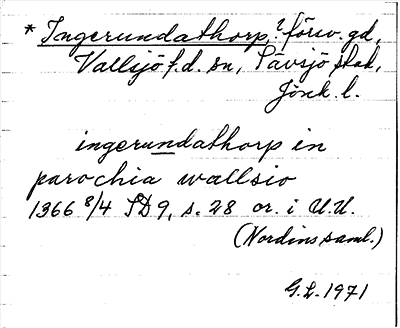 * Ingerundathorp, ? förv. gd,
Vallsjö f.d. sn, Sävsjö stad,
Jönk. l.
ingerundathorp in
parochia wallsio
1366 8/4 SD 9, s. 28 or. i U.U.
(Nordins saml.)
G.L. 1971